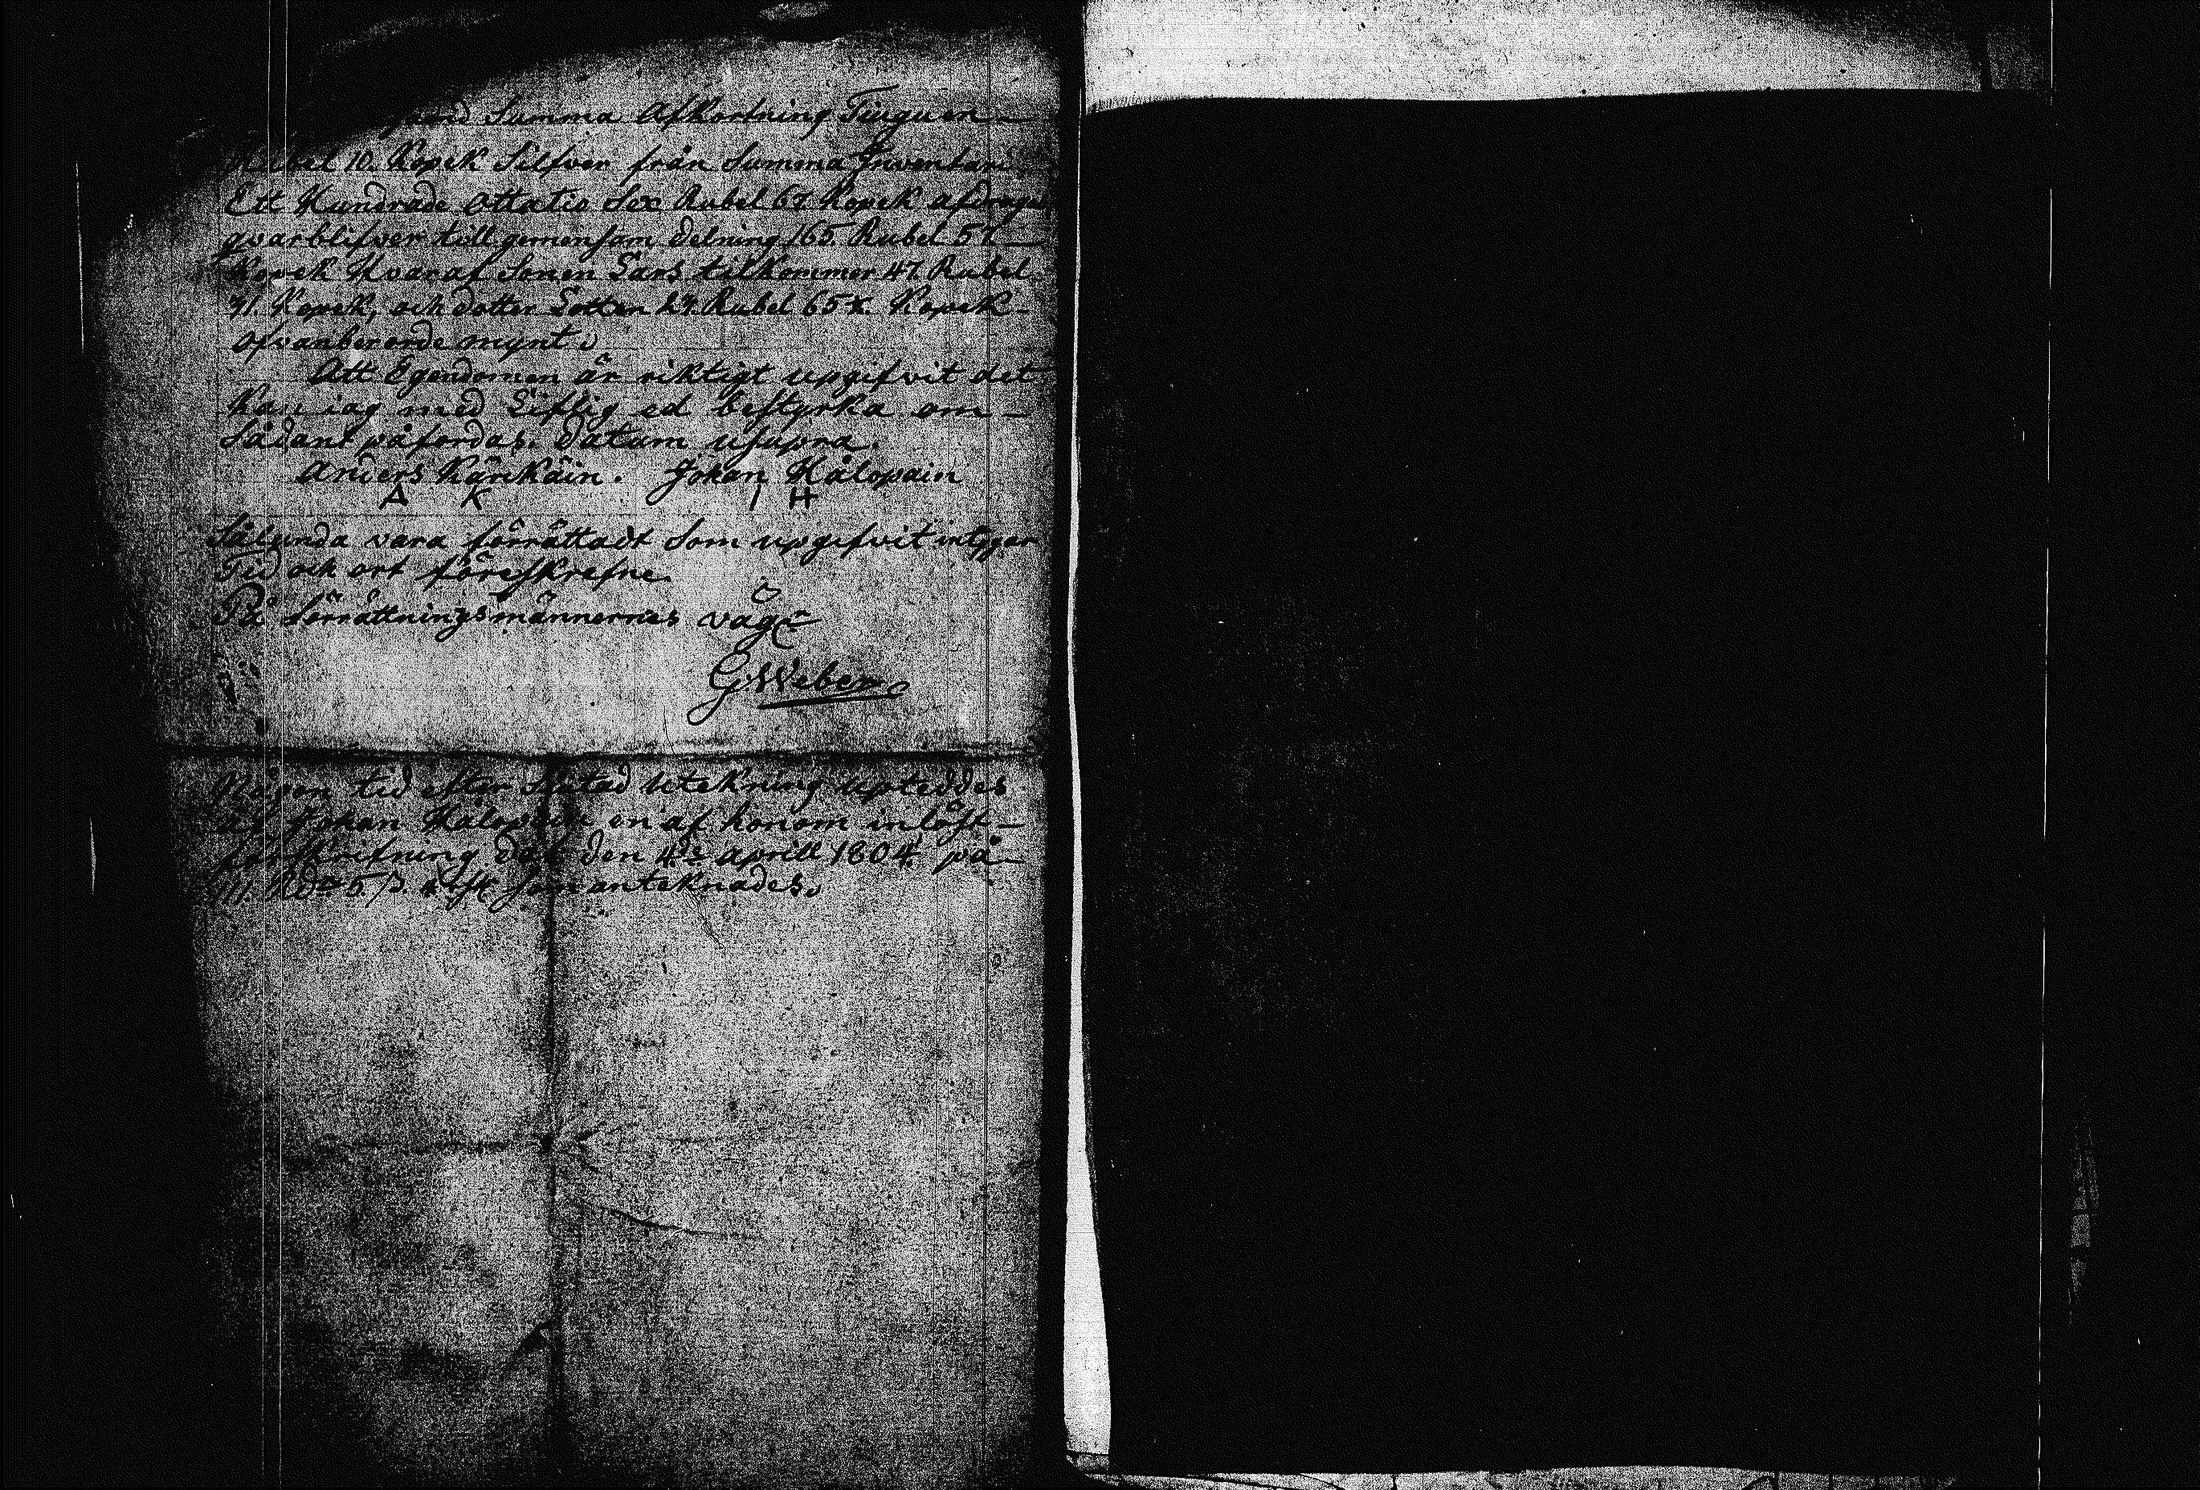 Summa Afkortning Tiugu en
Rubel 10. Kopek Silfver från Summa Inventari
Ett Hundrade Ottatio Sex Rubel 67. Kopek afdrages
qvarblifver till gemensam delning 165. Rubel 57.
Kopek Hvaraf Sonen Lars tilkommer 47. Rubel
Kopek, och dotter Lotten Rubel Kopek
ofvanberörde mynt.
Att Egendomen är riktigt upgifvit det
Kan iag med Liflig ed bestyrka om
Sådant påfordas. Datum utsupra.
Anders Kärikäin. Johan Hålopain
A K I H
Sålunda vara förrättadt Som upgifvit intygar
Tid och ort föreskrefne.
På förrättningsmännernes vägr
G. Weber
Någon tid efter Slutad Utekning upteddes
af Johan Hålopain en af honom inlöst
förskrifning dat den 4de aprill 1804. på
11. Rdr 5 /3. 4 rst Som anteknades.